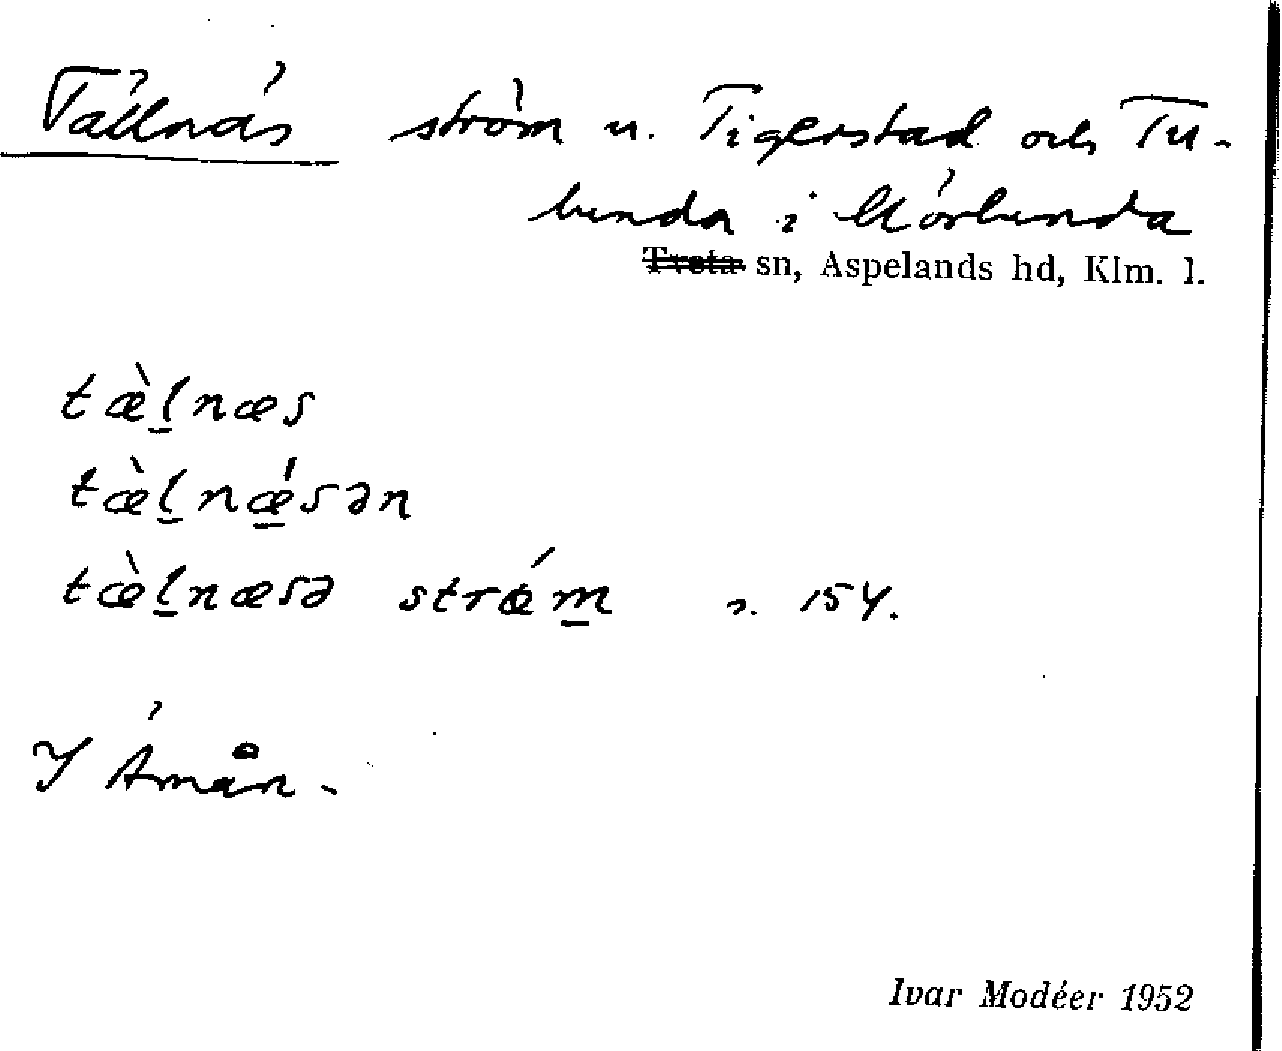 Tällnäs ström u. Tigerstad och Tu-
lunda i Mörlunda
Tveta sn, Aspelands hd, Klm. l.
tæ̀l̲næs
tæ̀l̲nǽ̲sən
tæ̀l̲næsə strǿm̲ s. 154.
I Åmån.
Ivar Modéer 1952